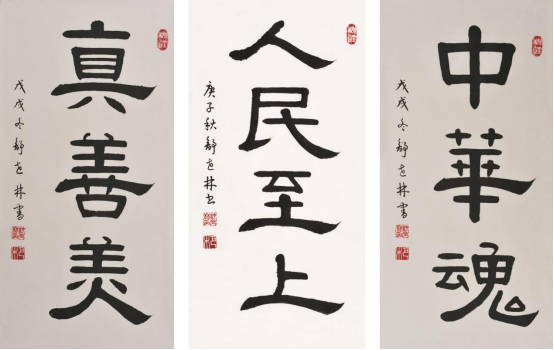 真善美
戊戌冬静远林書
人民至上
庚子秋静远林书
中華魂
戊戌冬静远林書